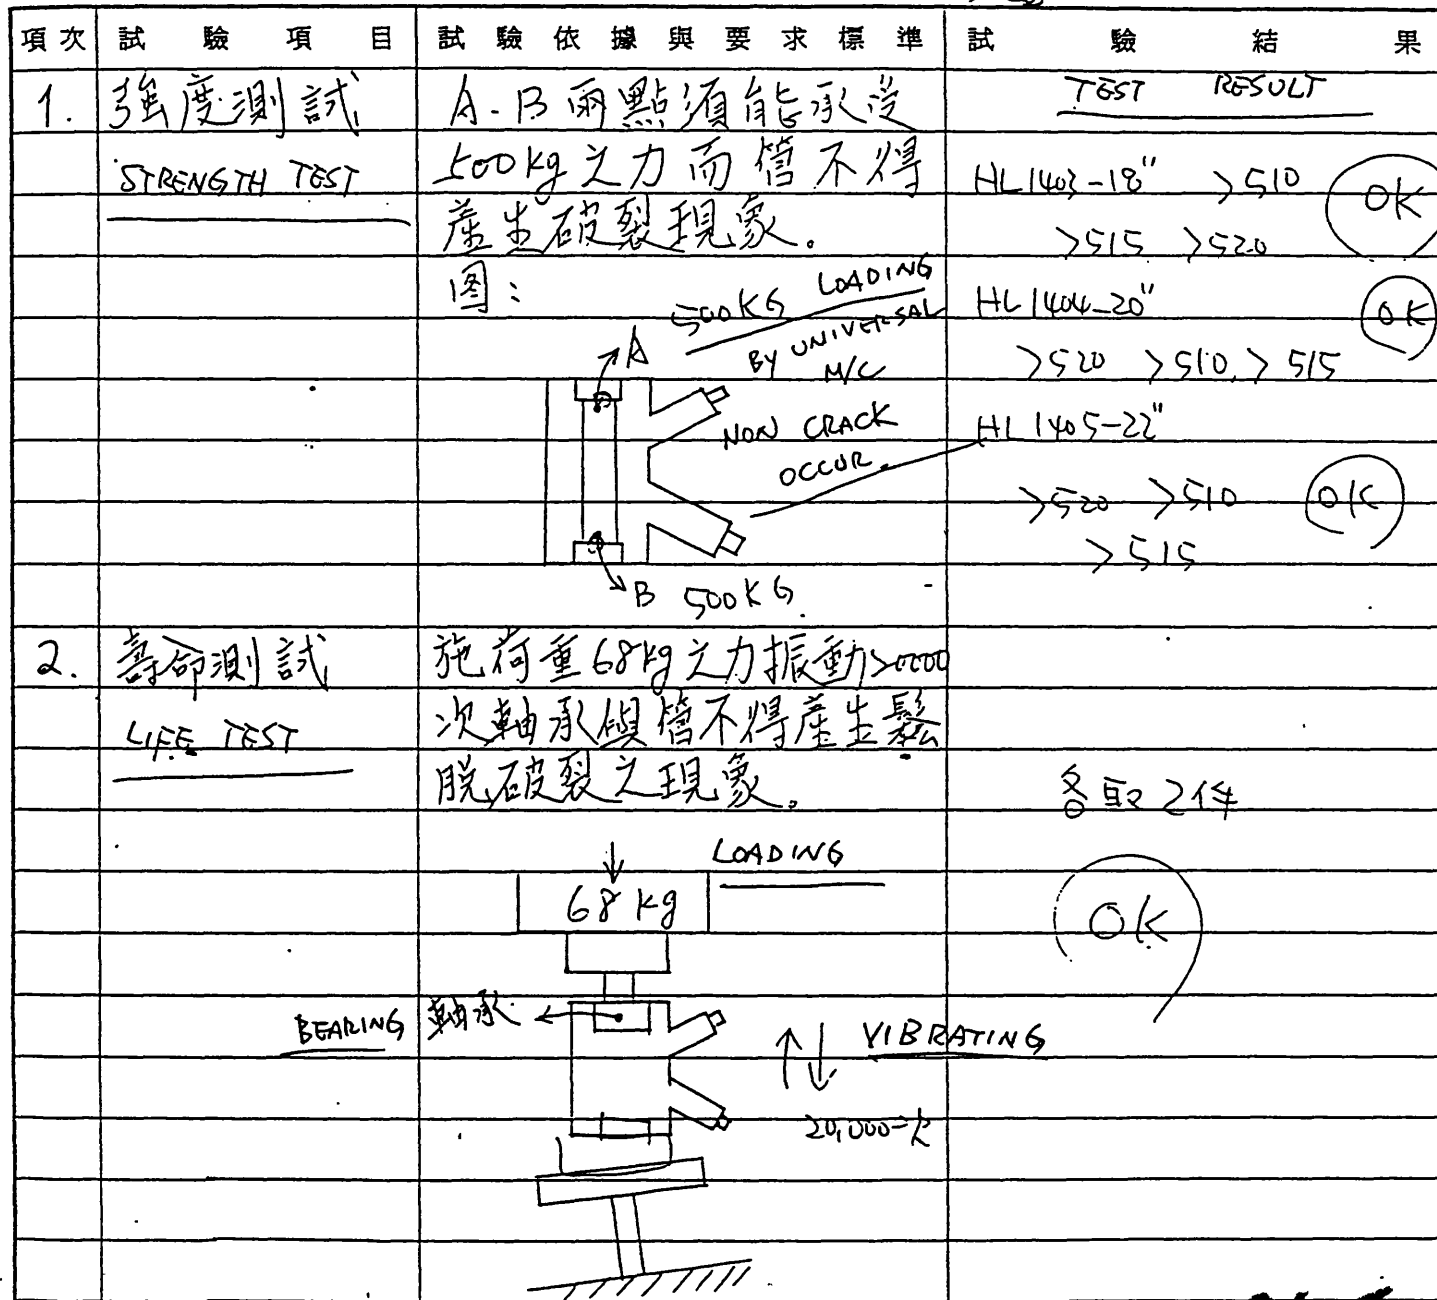 項次 試驗項目 試驗依據與要求標準 試驗結果
1. 強度測試
STRENGTH TEST
A.B兩點須能承受
500kg之力而管不得
產生破裂現象。
图:
500KG LOADING
BY UNIVERSAL
M/C
A
NON CRACK
OCCUR.
B 500KG.
TEST RESULT
HL1403-18" >510 OK
>515 >520
HL1404-20" OK
>520 >510, >515
HL1405-22"
>520 >510 OK
>515
2. 壽命測試
LIFE TEST
施荷重68kg之力振動20000
次軸承與管不得產生鬆
脫破裂之現象。
LOADING
68kg
BEARING 軸承
VIBRATING
20,000次
各取2件
OK